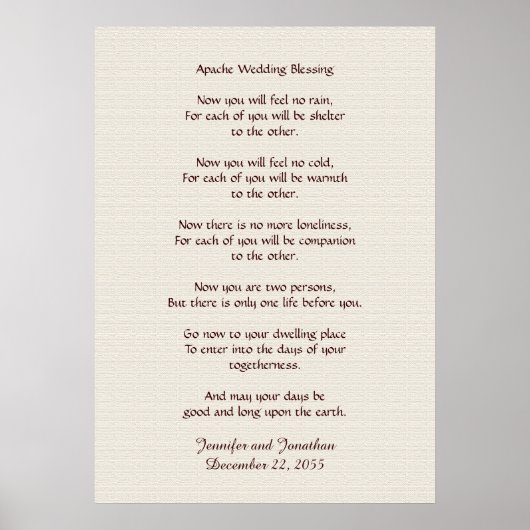 Apache Wedding Blessing
Now you will feel no rain,
For each of you will be shelter
to the other.
Now you will feel no cold,
For each of you will be warmth
to the other.
Now there is no more loneliness,
For each of you will be companion
to the other.
Now you are two persons,
But there is only one life before you.
Go now to your dwelling place
To enter into the days of your
togetherness.
And may your days be
good and long upon the earth.
Jennifer and Jonathan
December 22, 2055